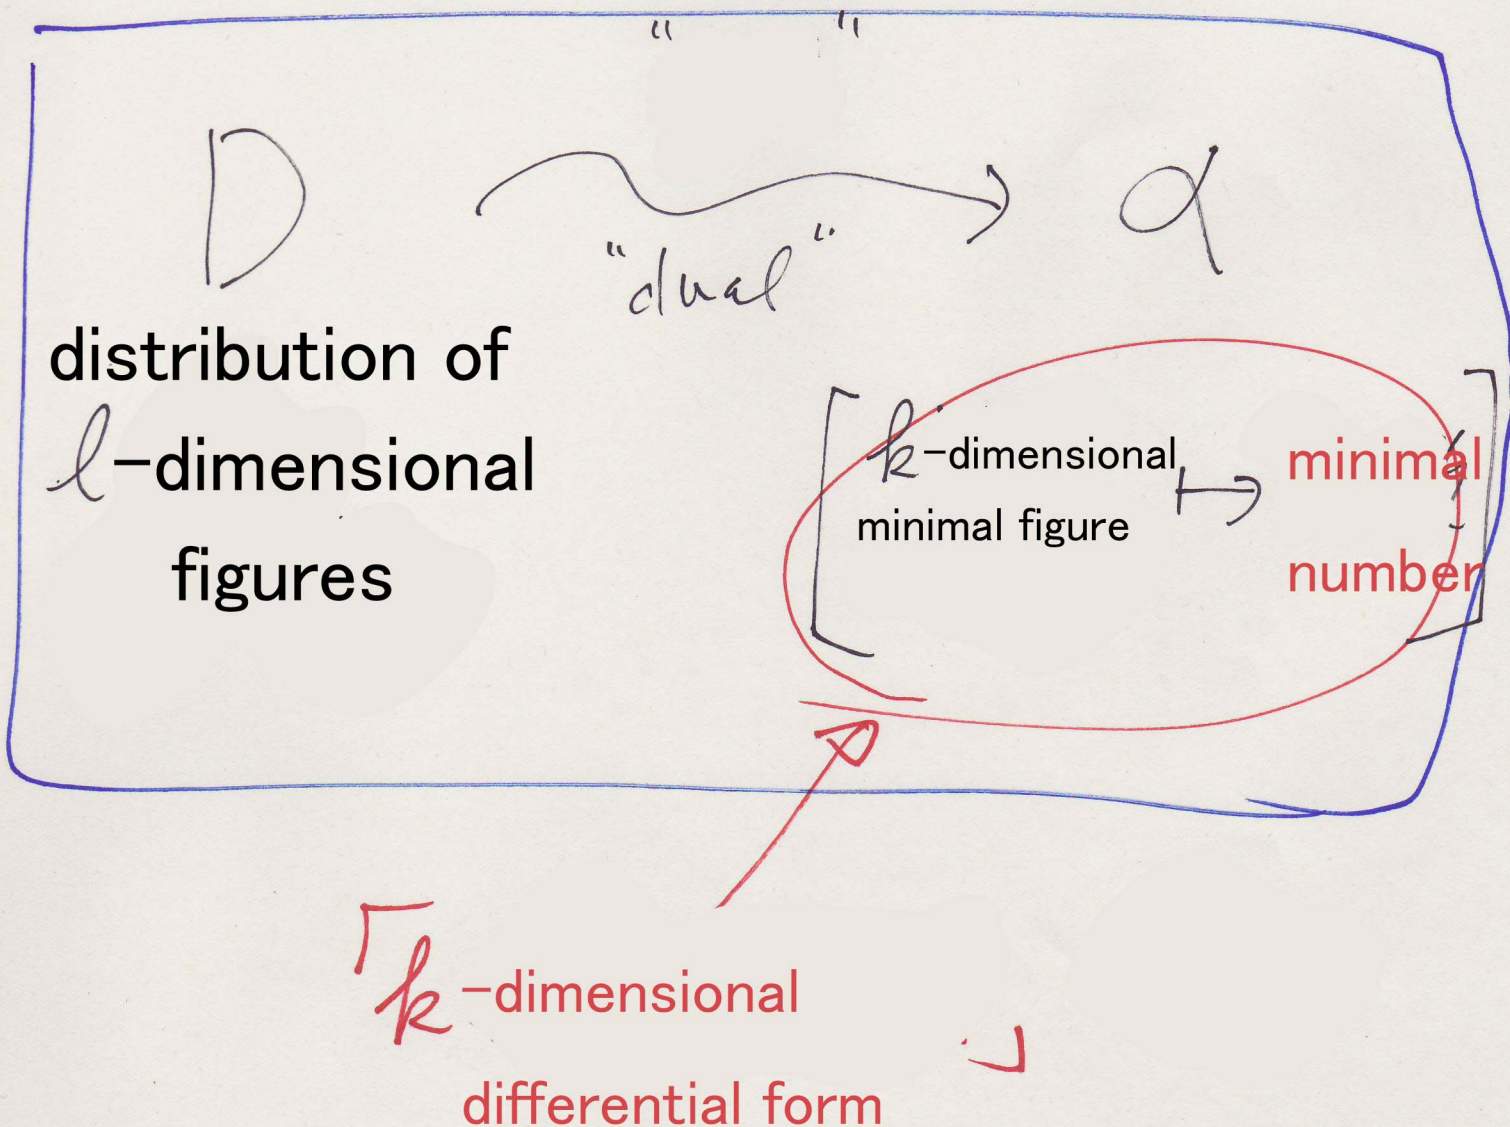 “ ”
D α
“dual”
distribution of
ℓ-dimensional
figures
[ k-dimensional ↦ minimal ]
minimal figure number
「k-dimensional
differential form」